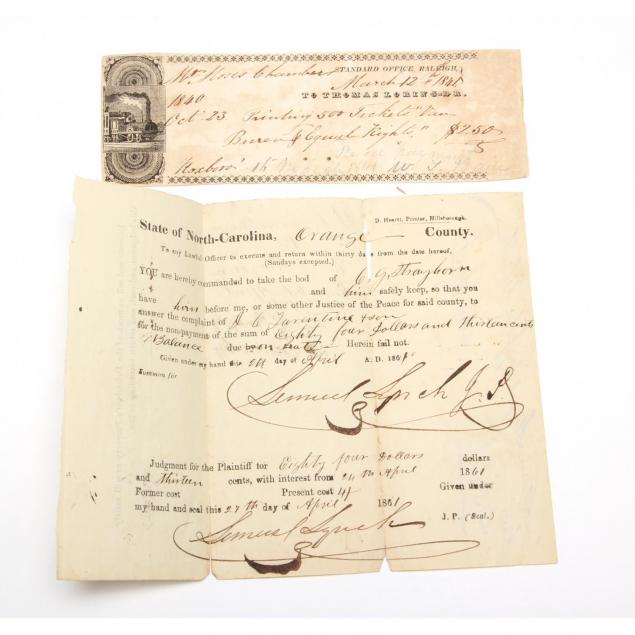 Mr. Moses Chambers
STANDARD OFFICE, RALEIGH,
March 12th 1841
TO THOMAS LORING, DR.
1840
Oct. 23 Printing 500 Tickets "Van
Buren & Equal Rights," $2.50
Roxboro' 15
D. Heartt, Printer, Hillsborough.
State of North-Carolina, Orange County.
To any Lawful Officer to execute and return within thirty days from the date hereof,
(Sundays excepted.)
YOU are hereby commanded to take the bod of C. G. Strayhorn
and him safely keep, so that you
have him before me, or some other Justice of the Peace for said county, to
answer the complaint of Tarentine & son
for the non-payment of the sum of Eighty four Dollars and thirteen cents
Balance due Herein fail not.
Given under my hand this 24 day of April A. D. 1861
Summon for
Samuel Lynch J. P.
Judgment for the Plaintiff for Eighty four Dollars dollars
and thirteen cents, with interest from 24th April 1861
Former cost Present cost Given under
my hand and seal this 27th day of April 1861
Samuel Lynch J. P. (Seal.)